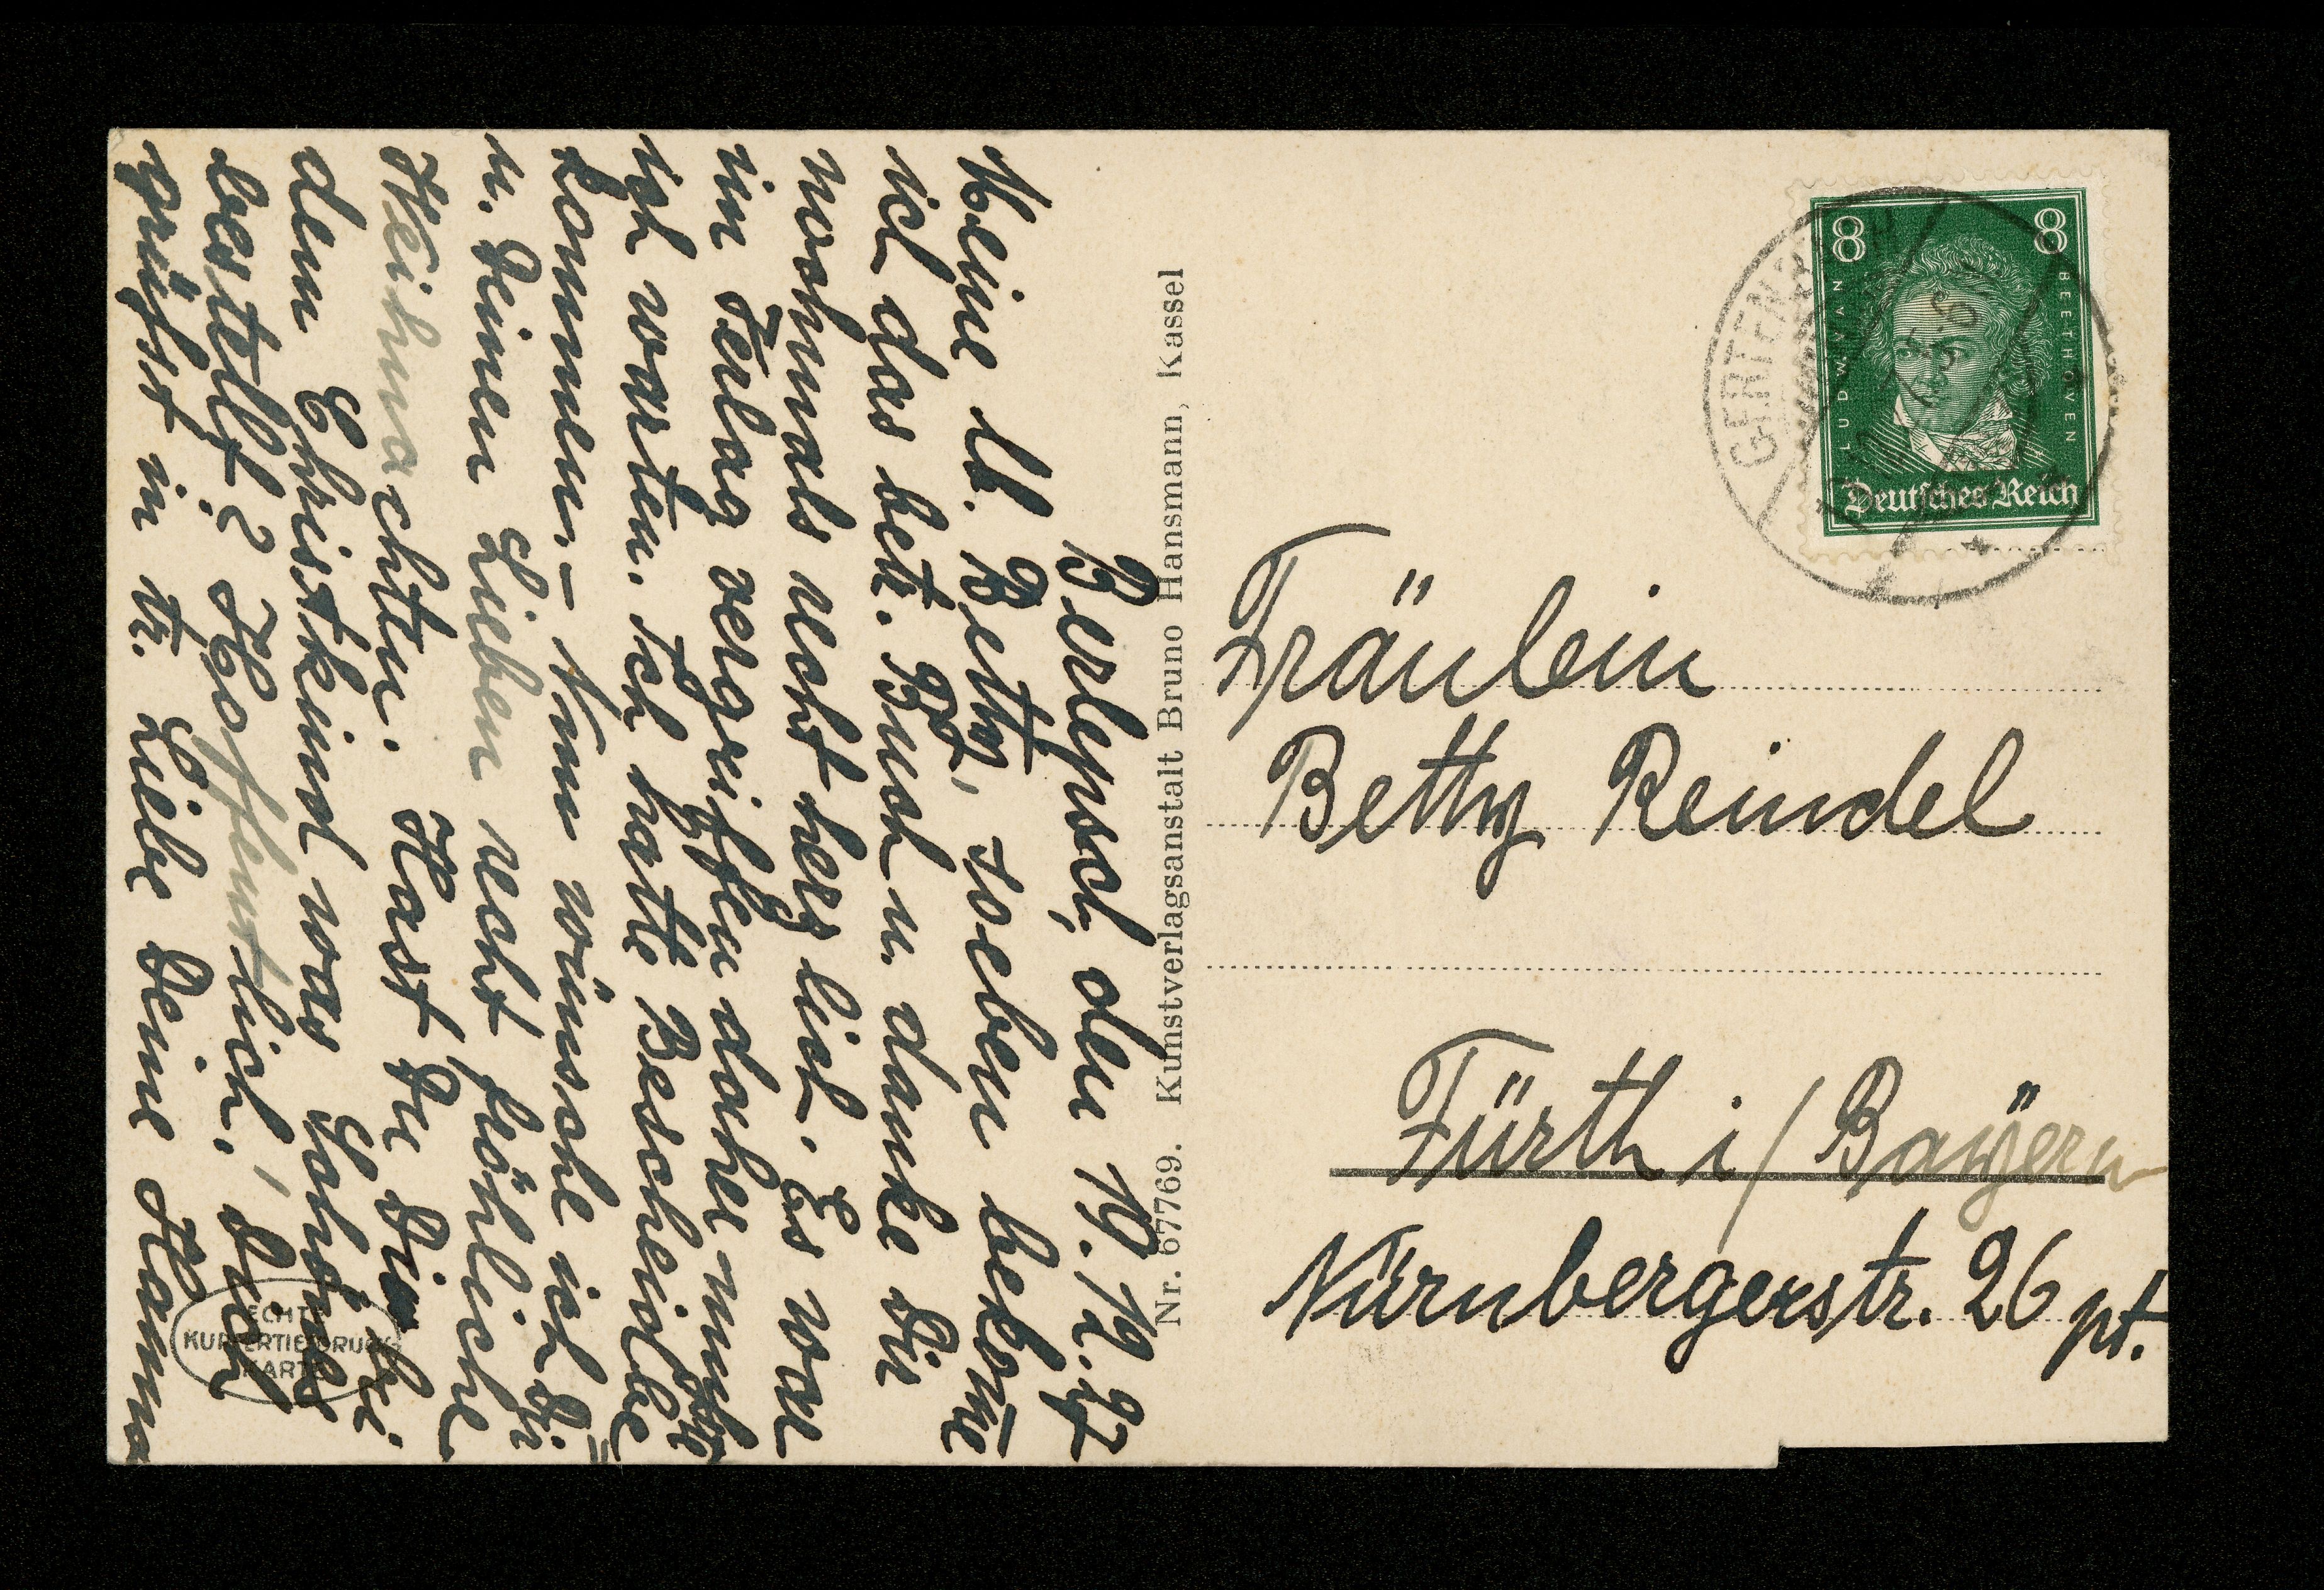 Berlepsch, den 19.12.27
Meine lb. Betty, soeben bekomme
ich das bet. Buch u. danke Dir
nochmals recht herzlich. Es war
im Verlag vergriffen daher mußte
ich warten. Ich hatte Bescheidbe=
kommen. – Nun wünsche ich Dir
u. Deinen Lieben recht fröhliche
Weihnachten. Hast Du Dir bei
dem Christkind was Schönes
bestellt? Hoffentlich! Dich
grüßt in tr. Liebe Deine Hanna
Nr. 67769. Kunstverlagsanstalt Bruno Hansmann, Kassel
ECHTE
KUPFERTIEFDRUCK-
KARTE
8 8
LUDWIG VAN BEETHOVEN
Deutsches Reich
GERTENBACH
Fräulein
Betty Reindel
Fürth i/Bayern
Nürnbergerstr. 26 pt.